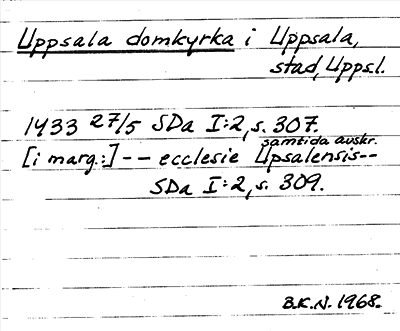 Uppsala domkyrka i Uppsala,
stad, Uppsl.
1433 27/5 SDa I:2, s. 307.
samtida avskr.
[i marg.:] -- ecclesie Upsalensis--
SDa I:2, s. 309.
B.K.N. 1968.